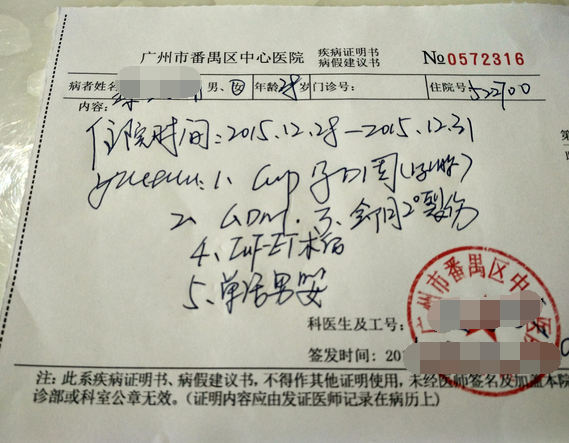 广州市番禺区中心医院 疾病证明书 病假建议书 No0572316
病者姓名 男、女 年龄28岁 门诊号: 住院号522700
内容:
住院时间:2015.12.28-2015.12.31
1、G1P1孕 周
2、GDM. 3、会阴2°裂伤
4、IVF-ET术后
5、单活男婴
科医生及工号:
签发时间:201
注:此系疾病证明书、病假建议书,不得作其他证明使用,未经医师签名及加盖本院
诊部或科室公章无效。(证明内容应由发证医师记录在病历上)
广州市番禺区中